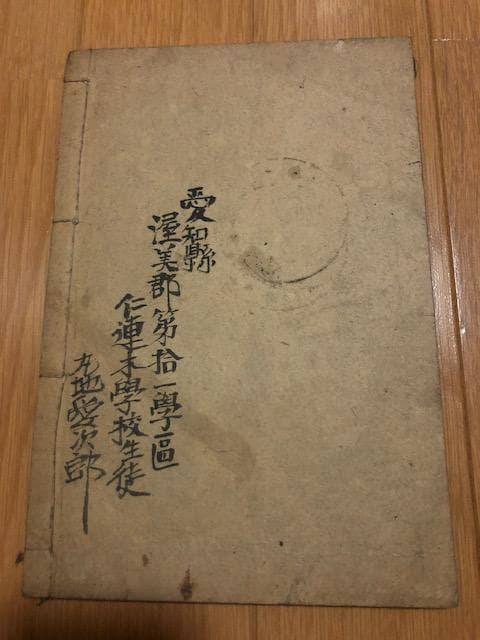 愛知縣
渥美郡第拾一學區
仁連木學校生徒
九地愛次郎